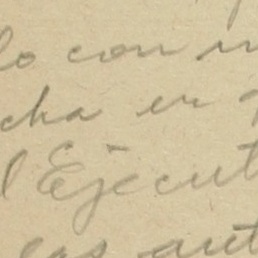 lo con
cha en
l Ejecut
eas aut